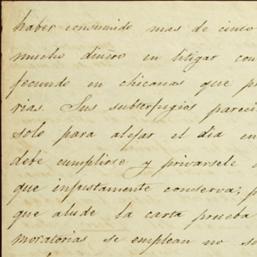 haber consumido mas de cinco
mucho dinero en litigar con
fecundo en chicanas que p
rias. Sus subterfugios pareci
solo para alejar el dia en
debe cumplirse y privarsele
que injustamente conserva; p
que alude la carta prueba
moratorias se emplean no s